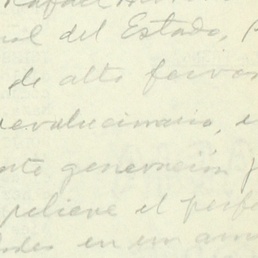 Rafael
del Estado,
de alto fervor
evolucionario, e
generación
relieve el perfe
en un am